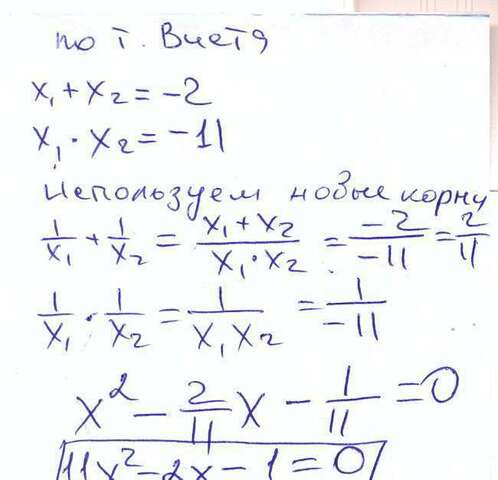 по т. Виета
x₁ + x₂ = -2
x₁ · x₂ = -11
используем новые корни
1/x₁ + 1/x₂ = (x₁ + x₂)/(x₁ · x₂) = -2/-11 = 2/11
1/x₁ · 1/x₂ = 1/(x₁x₂) = 1/-11
x² - 2/11 x - 1/11 = 0
11x² - 2x - 1 = 0